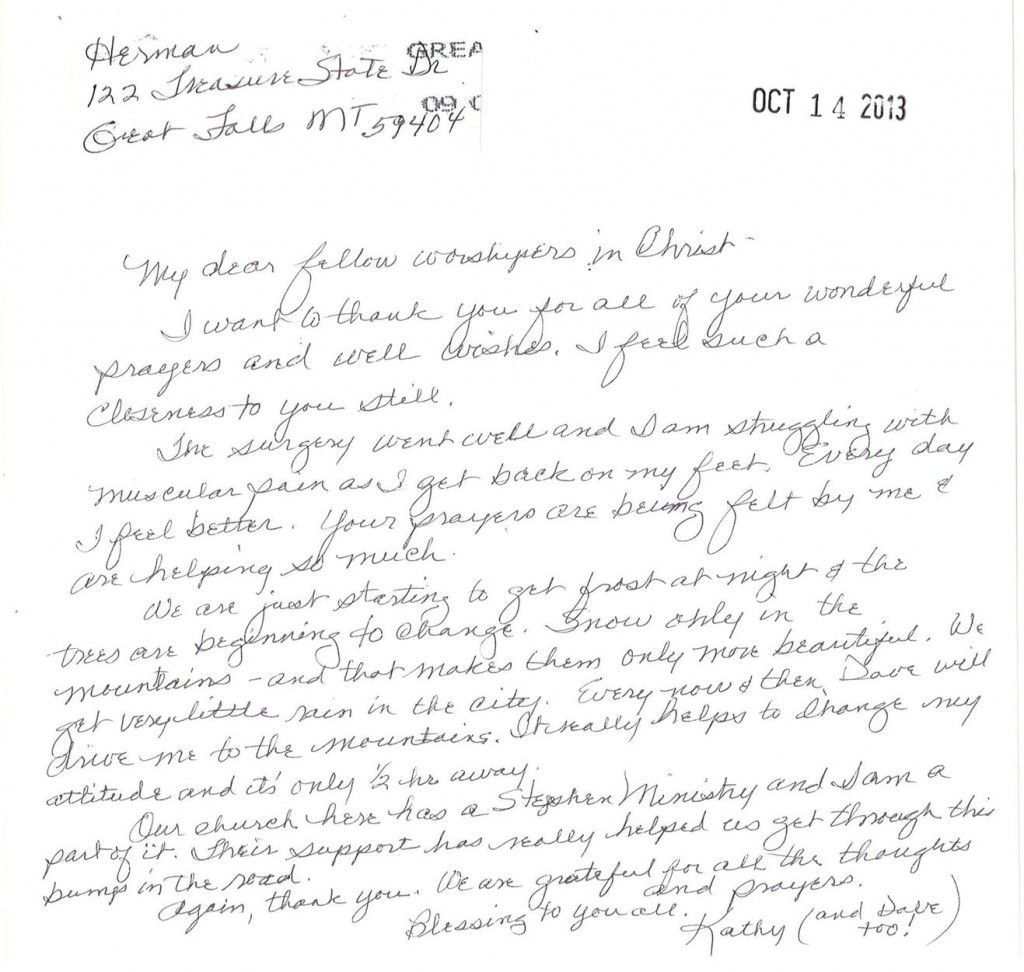 Herman
122 Treasure State Dr
Great Falls MT 59404
GREA
09
OCT 14 2013
My dear fellow worshipers in Christ-
I want to thank you for all of your wonderful
prayers and well wishes. I feel such a
closeness to you still.
The surgery went well and I am struggling with
muscular pain as I get back on my feet. Every day
I feel better. Your prayers are being felt by me &
are helping so much.
We are just starting to get frost at night & the
trees are beginning to change. Snow only in the
mountains - and that makes them only more beautiful. We
get very little rain in the city. Every now & then Dave will
drive me to the mountains. It really helps to change my
attitude and it's only 1/2 hr away.
Our church here has a Stephen Ministry and I am a
part of it. Their support has really helped us get through this
bump in the road.
Again, thank you. We are grateful for all the thoughts
and prayers.
Blessing to you all.
Kathy (and Dave
too!)